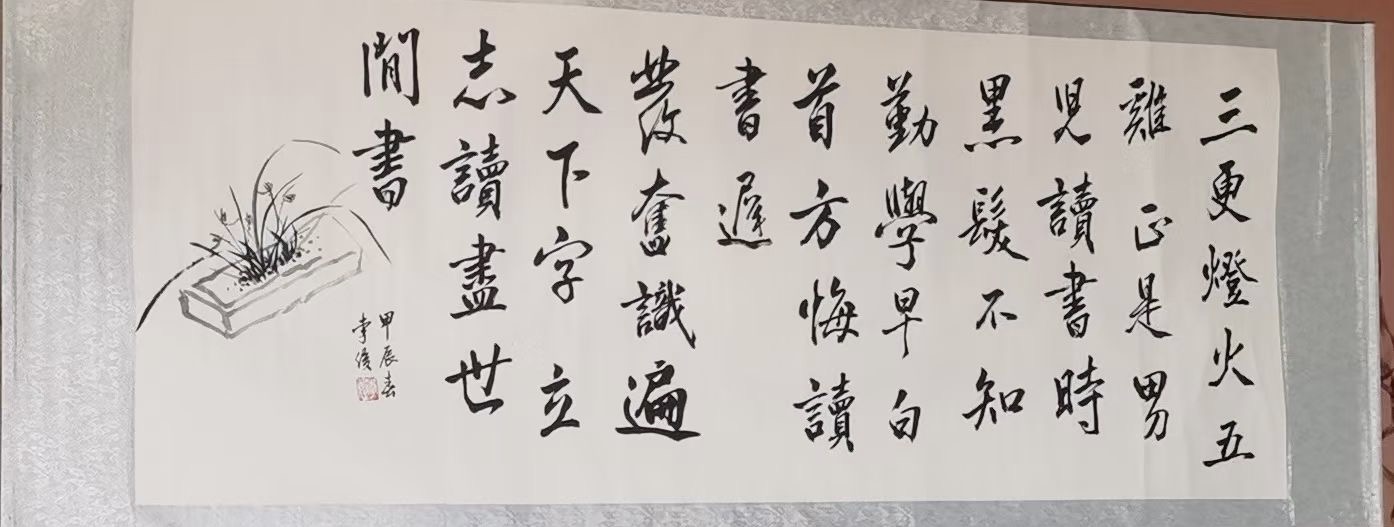 三更燈火五
雞正是男
兒讀書時
黑髮不知
勤學早白
首方悔讀
書遲
發奮識遍
天下字立
志讀盡世
間書
甲辰春
李俊